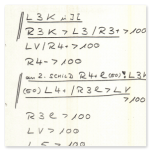 L3K
R3K > L3 / R3+ > 100
LV / R4+ > 100
R4- > 100
an 2. SCHILD R4+e (50): L3K
(50) L4+ / R3e > LV
> 100
R3e > 100
LV > 100
L5 > 100